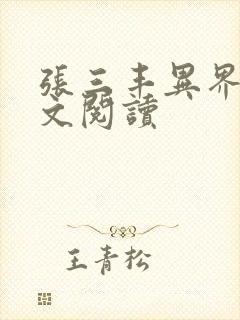 張三丰異界
文閱讀
王青松